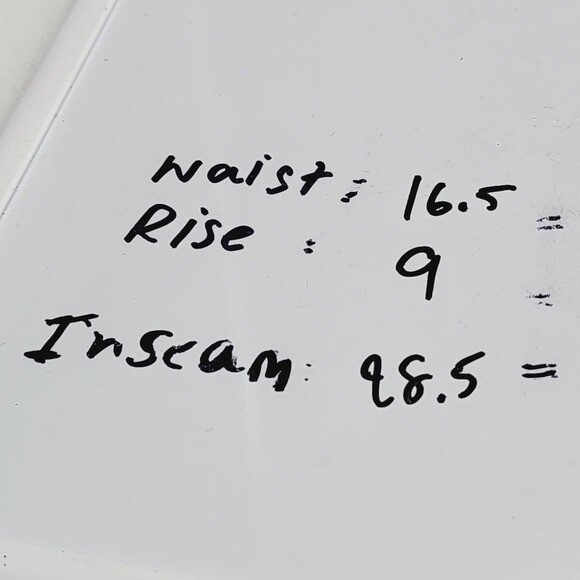 Waist: 16.5 =
Rise: 9 =
Inseam: 98.5 =